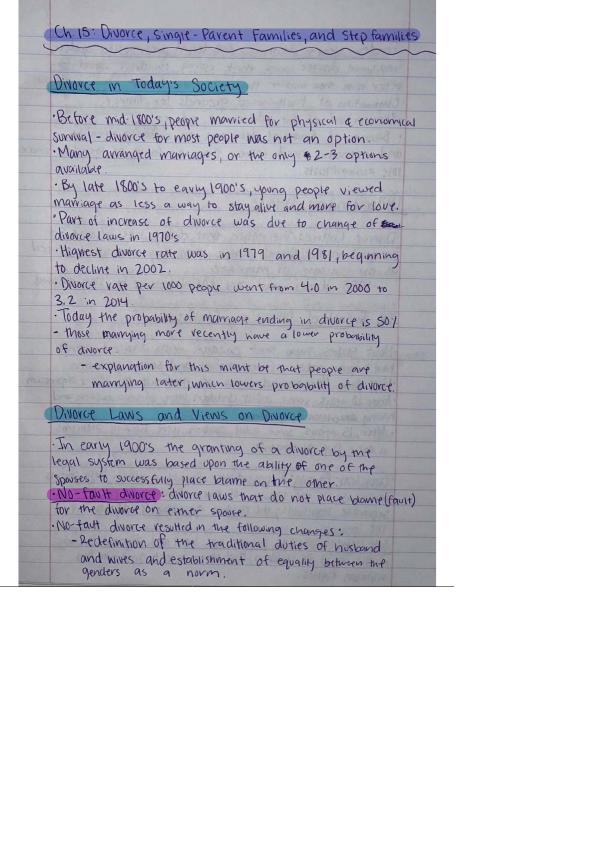 Ch 15: Divorce, Single-Parent Families, and Step families
Divorce in Today's Society
·Before mid-1800's, people married for physical & economical
survival - divorce for most people was not an option.
·Many arranged marriages, or the only 2-3 options
available.
·By late 1800's to early 1900's, young people viewed
marriage as less a way to stay alive and more for love.
·Part of increase of divorce was due to change of
divorce laws in 1970's
·Highest divorce rate was in 1979 and 1981, beginning
to decline in 2002.
·Divorce rate per 1000 people went from 4.0 in 2000 to
3.2 in 2014.
·Today the probability of marriage ending in divorce is 50%
- those marrying more recently have a lower probability
of divorce.
- explanation for this might be that people are
marrying later, which lowers probability of divorce.
Divorce Laws and Views on Divorce
·In early 1900's the granting of a divorce by the
legal system was based upon the ability of one of the
spouses to successfully place blame on the other.
·No-fault divorce: divorce laws that do not place blame (fault)
for the divorce on either spouse.
·No-fault divorce resulted in the following changes:
-Redefinition of the traditional duties of husband
and wives and establishment of equality between the
genders as a norm.